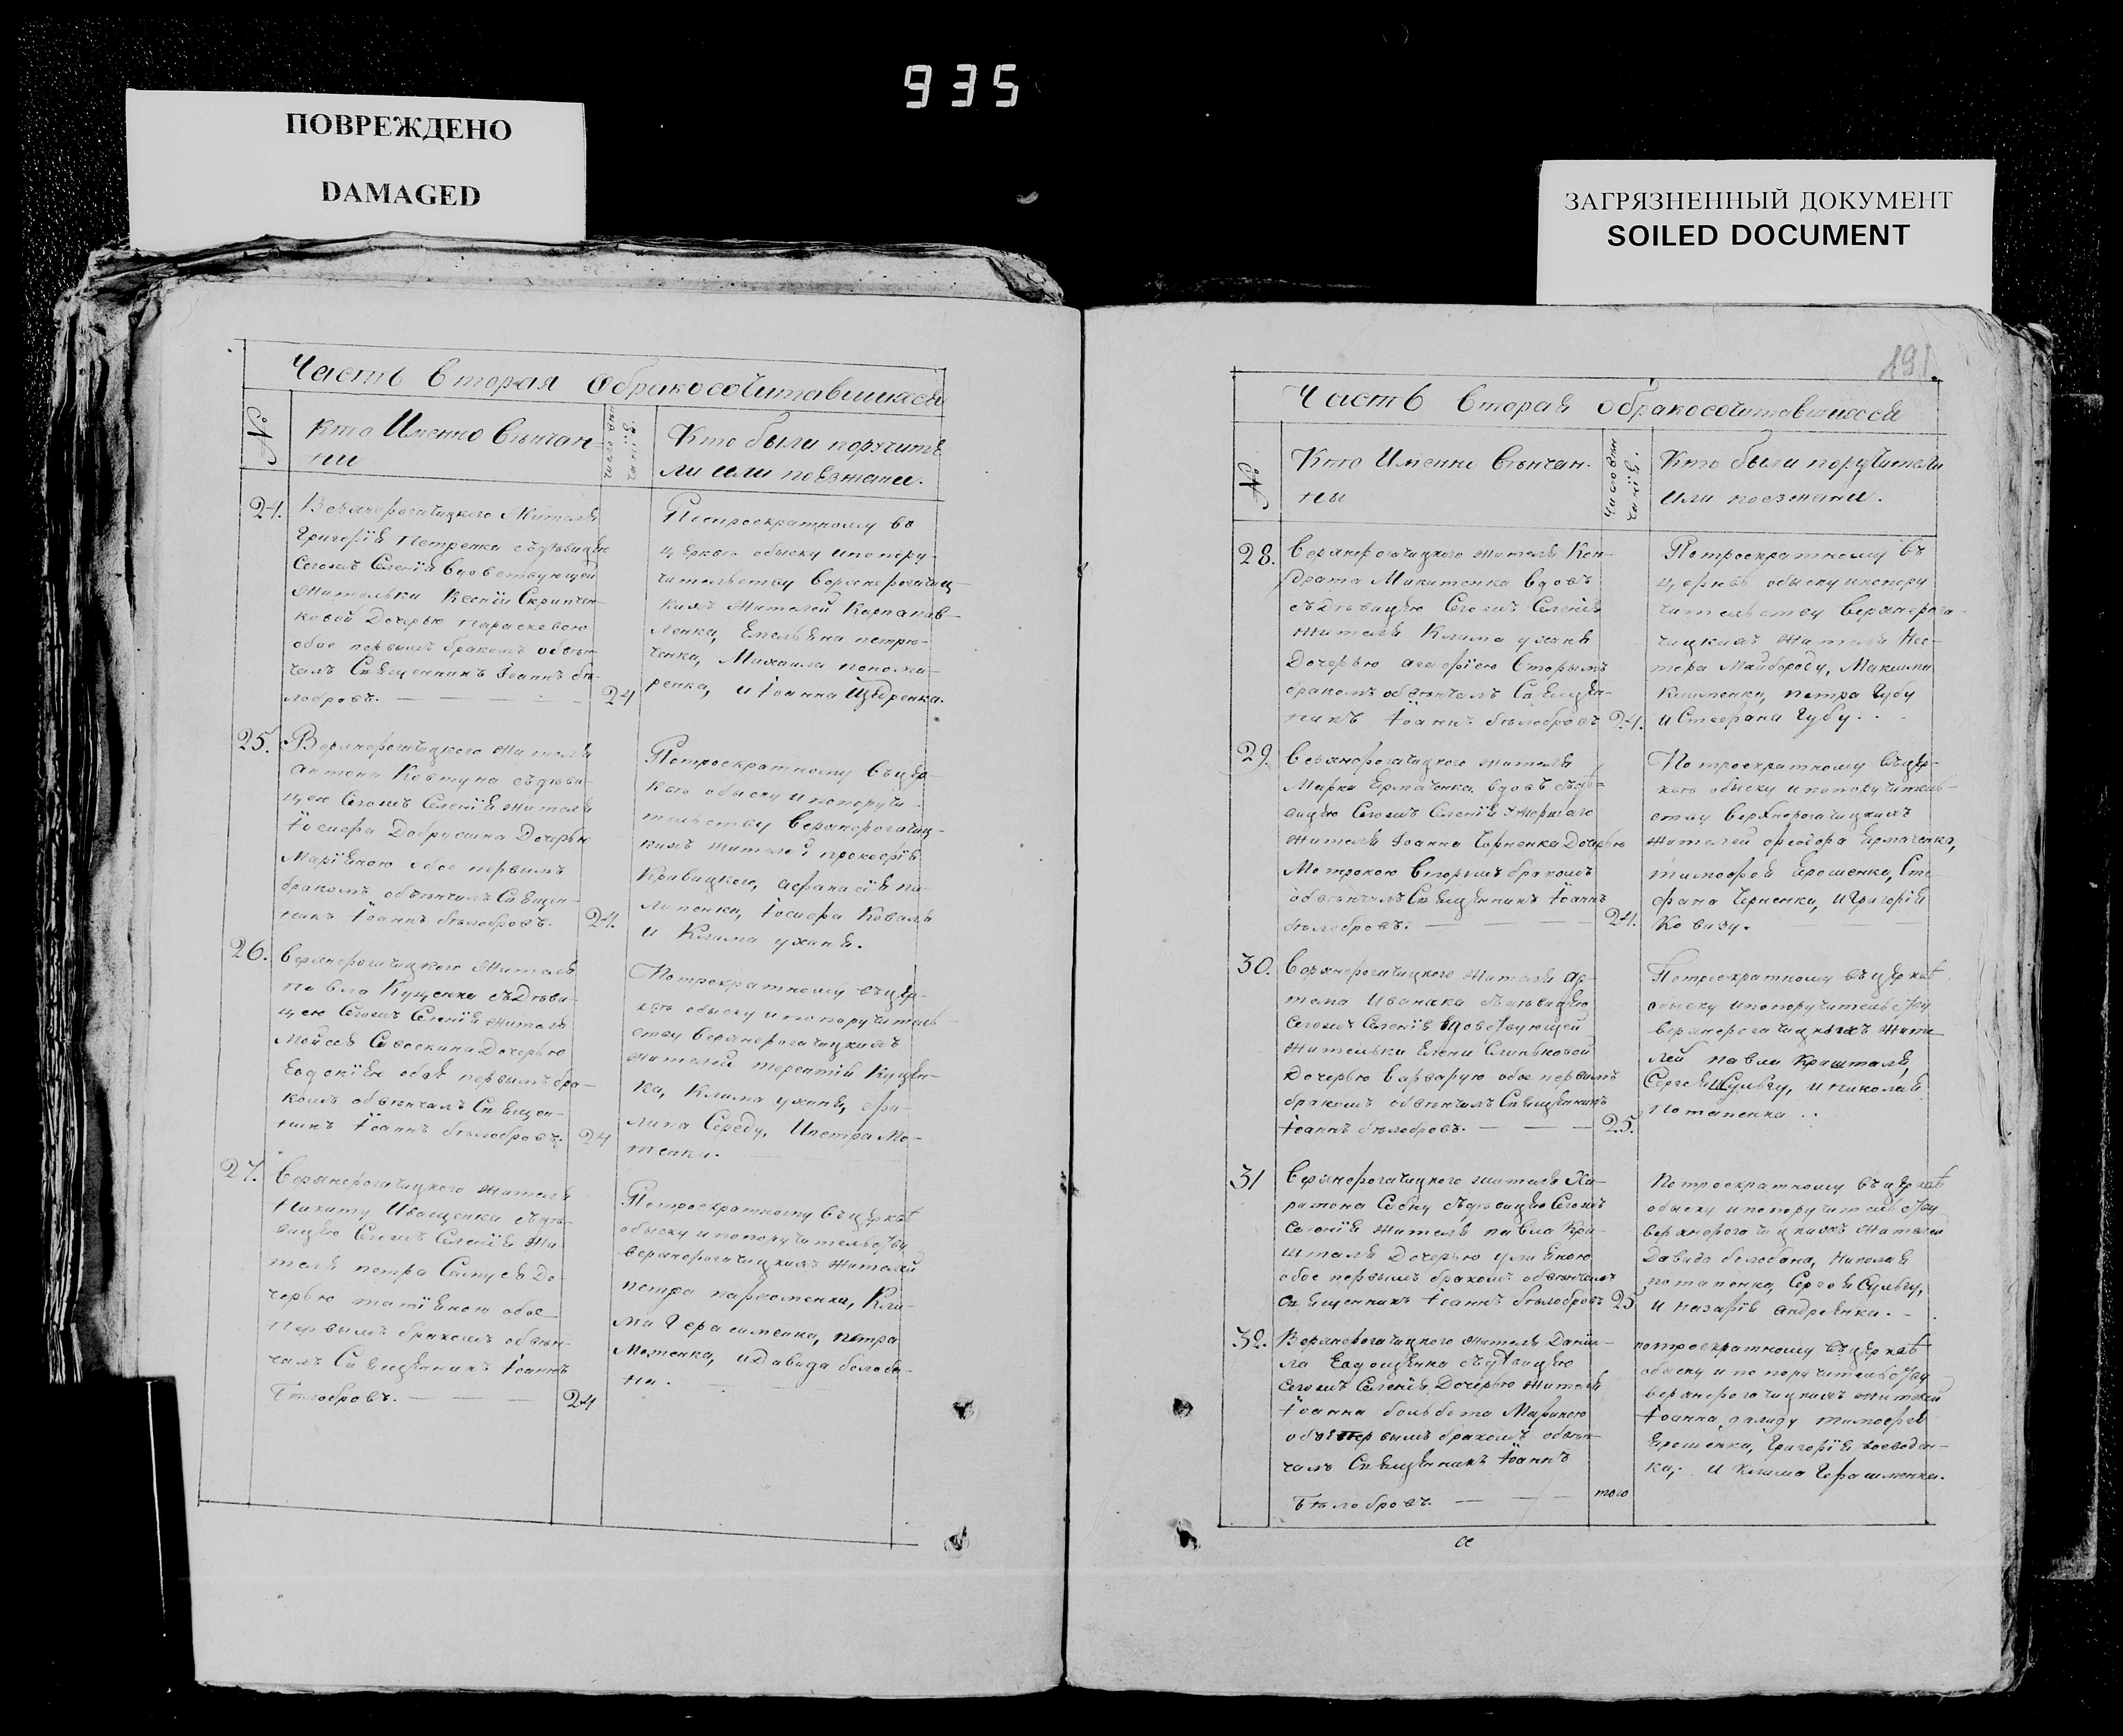 935
ПОВРЕЖДЕНО
DAMAGED
ЗАГРЯЗНЕННЫЙ ДОКУМЕНТ
SOILED DOCUMENT
Часть вторая обракосочитавшихся
№
Кто Именно венчан-
ни
Кто были поручите
ли или поезжане.
24.
Верхнерогачицкого Жителя
Григорія Петренка съдѣвицею
Сегожъ Селенія вдовствующей
жительки Ксеніи Скрипчен-
ковой Дочерью Параскевою
обое первымъ бракомъ обвен-
чалъ Священникъ Іоаннъ бѣ-
лобровъ.
24
Потроекратному во
церквѣ обыску ипопору-
чительству верхнерогачиц-
кихъ жителей
ленка, Емельяна петрю-
ченка, Михаила понома-
ренка, и Іоанна Щедренка.
25.
Верхнерогачицкого жителя
антона Ковтуна съдѣви-
цею Сегожъ Селенія жителя
Іосифа Добрусина Дочерью
Маріяною обое первымъ
бракомъ обвѣнчалъ Священ-
никъ Іоаннъ бѣлобровъ.
24.
Потроекратному въцер-
квѣ обыску ипопоручи-
тельству верхнерогачиц-
кихъ жителей прокофія
Кравицкого, афанасія пи-
липенка, Іосифа Коваля
и Клима ухань.
26.
верхнерогачицкого жителя
павла Кущенка съДѣви-
цею Сегожъ Селенія жителя
Мойсея Савоскина Дочерью
Евдокіею обое первымъ бра-
комъ обвѣнчалъ Священ-
никъ Іоаннъ бѣлобровъ.
24
Потроекратному въцер-
квѣ обыску ипопоручитель-
ству верхнерогачицкихъ
жителей терентія Кущен-
ка, Клима ухань, фи-
липа Середу, Ипетра Мо-
тенка.
27.
верхнерогачицкого жителя
Никиту Иващенка съдѣ-
вицею Сегожъ Селенія жи-
теля петра Сапуся До-
черью татіяною обое
первымъ бракомъ обвен-
чалъ Священникъ Іоаннъ
Бѣлобровъ.
24
Потроекратному въцерквѣ
обыску ипопоручительству
верхнерогачицкихъ жителей
петра пархоменка, Кли-
ма Герасименка, петра
Мотенка, иДавида белоба-
на.
191.
Часть вторая обракосочитавшихся
№
Кто Именно венчан-
ны
Кто были поручители
Или поезжане.
28.
верхнерогачицкого жителя Кон-
драта Микитенка вдовъ
съДѣвицею Сегожъ Селенія
жителя Клима ухань
Дочерью агафіею вторымъ
бракомъ обвѣнчалъ Священ-
никъ Іоаннъ бѣлобровъ
24.
Потроекратному въ
церквѣ обыску ипопору
чительству верхнерога-
чицкихъ жителя Нес-
тера Майбороду, Максима
петра Губу
и Стефана Губу.
29.
верхнерогачицкого жителя
Марка Ермаченка вдовъ съдѣ-
вицею Сегожъ Селенія умершаго
жителя Іоанна Чорненка Дочерью
Мотроною вторымъ бракомъ
обвенчалъ Священникъ Іоаннъ
бѣлобровъ.
24.
Потроекратному въцер-
квѣ обыску ипопоручитель-
ству верхнерогачицкихъ
жителей фіодора Ермаченка,
тимофея Ерошенка, Сте
фана Черненка, иГригорія
Ковизу.
30.
верхнерогачицкого жителя Ар-
тема Ивана­ка съдѣвицею
Сегожъ Селенія вдовствующей
жительки Елени Слиньковой
Дочерью варварую обое первымъ
бракомъ обвѣнчалъ Священникъ
Іоаннъ бѣлобровъ.
25.
Потроекратному въцерквѣ
обыску ипопоручительству
верхнерогачицкихъ жите
лей павла Кришталя,
Сергея Сульгу, и николая
Потапенка
31
верхнерогачицкого жителя Ха-
ритона Сову съдѣвицею Сегожъ
Селенія жителя павла Кри-
шталя Дочерью улияною
обое первымъ бракомъ обвенчалъ
Священникъ Іоаннъ бѣлобровъ
25
Потроекратному въцерквѣ
обыску ипопоручительству
верхнерогачицкихъ жителей
Давида белобана, Николая
потапенка, Сергея Сульгу,
и назарія андреенка.
32.
Верхнерогачицкого жителя Дании-
ла Евдощенка съдѣвицею
Сегожъ Селенія Дочерью жителя
Іоанна больбота Мариною
обое первымъ бракомъ обвен-
чалъ Священникъ Іоаннъ
Бѣлобровъ.
того
потроекратному въцерквѣ
обыску ипопоручительству
верхнерогачицкихъ жителей
Іоанна галиду тимофея
Ерошенка, Григорія воеводен-
ка, и клима Герашменка.